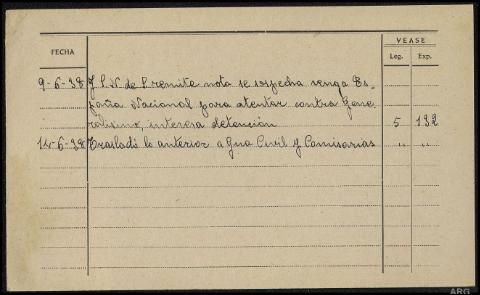 VEASE
FECHA Leg. Exp.
9-6-38 J S.N de P remite nota se sospecha venga Es-
paña Nacional para atentar contra Gene-
ralisimo, interesa detención 5 132
14-6-38 Trasladé lo anterior a Gua Civil y Comisarias " "
ARG